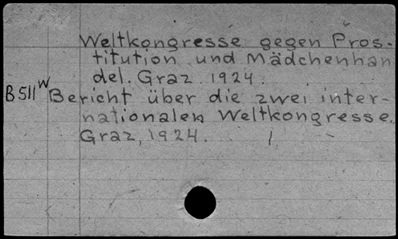 Weltkongresse gegen Pros-
titution und Mädchenhan
del. Graz 1924.
B 511 W Bericht über die zwei inter-
nationalen Weltkongresse.
Graz, 1924.